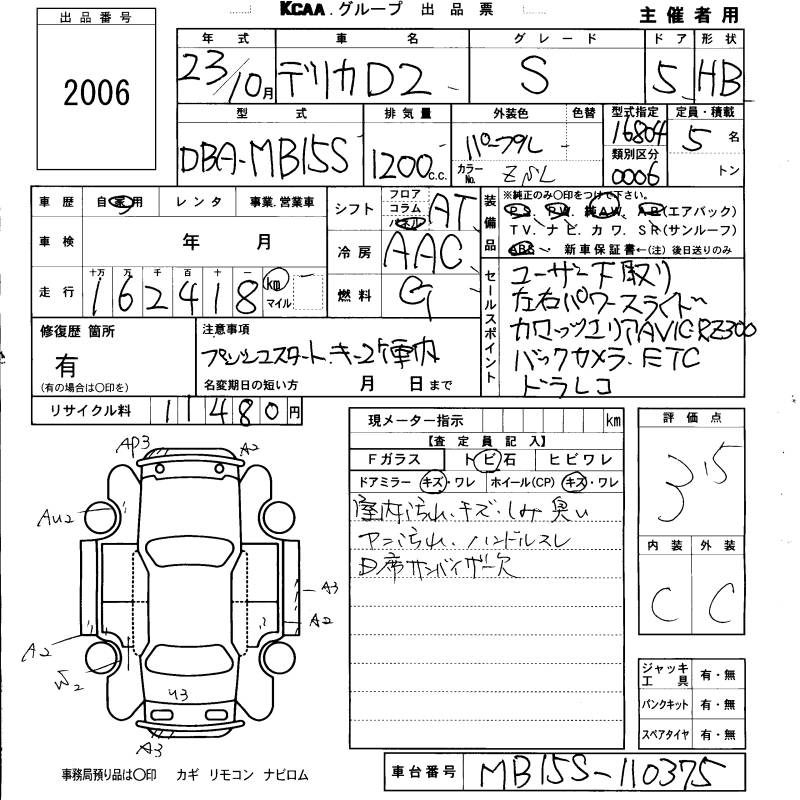 出品番号
2006
KCAA.グループ 出品票
主催者用
年式 車名 グレード ドア 形状
23/10月 デリカD2 S 5 HB
型式 排気量 外装色 色替 型式指定 定員・積載
DBA-MB15S 1200c.c. パープル 16804 5名
カラーNo. ZNL 類別区分 0006 トン
車歴 自家用 レンタ 事業.営業車
車検 年 月
走行 十万 万 千 百 十 一
162418 km マイル
シフト フロア コラム パネル AT
冷房 AAC
燃料 G
装備品 ※純正のみ○印をつけて下さい。
P.S. P.W. 純A.W. A.B(エアバック)
T.V. ナビ. カワ. S.R(サンルーフ)
ABS 新車保証書←(注)後日送りのみ
セールスポイント
ユーザー下取り
左右パワースライド
カロッツェリアAVIC RZ300
バックカメラ.ETC
ドラレコ
修復歴 箇所
有
(有の場合は○印を)
注意事項
プッシュスタート.キー2ケ車内
名変期日の短い方 月 日まで
リサイクル料 11480円
現メーター指示 km
【査定員記入】
Fガラス トビ石 ヒビワレ
ドアミラー キズ・ワレ ホイール(CP) キズ・ワレ
室内汚れ.キズ.しみ 臭い
ヤニ汚れ.ハンドルスレ
D席サンバイザー欠
評価点
3.5
内装 外装
C C
ジャッキ工具 有・無
パンクキット 有・無
スペアタイヤ 有・無
AP3
A2
AU2
A3
A2
A2
W2
U3
A3
事務局預り品は○印 カギ リモコン ナビロム
車台番号 MB15S-110375